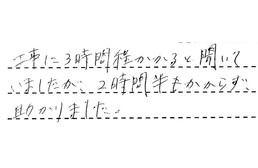 工事に3時間程かかると聞いて
いましたが、2時間半もかからず、
助かりました。